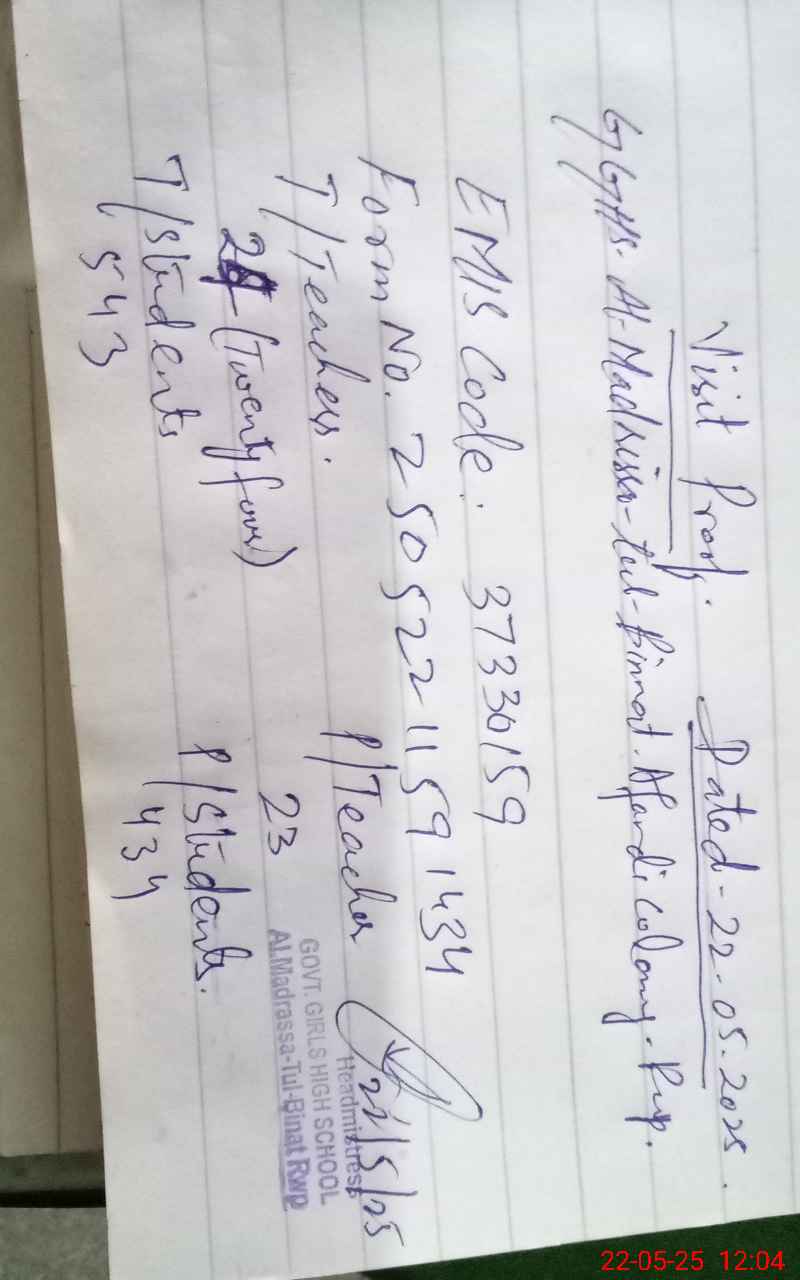 Visit Proof. Dated - 22.05.2025.
GGHS. Al-Madrissa-tul-Binnat. Afandi Colony. Rwp.
EMIS Code: 37330159
Form No. 25052211591434
T/Teachers. P/Teacher
24 (Twenty four) 23
T/Students P/Students.
543 434
22/5/25
Headmistress
GOVT. GIRLS HIGH SCHOOL
Al.Madrassa-Tul-Binat Rwp
22-05-25 12:04